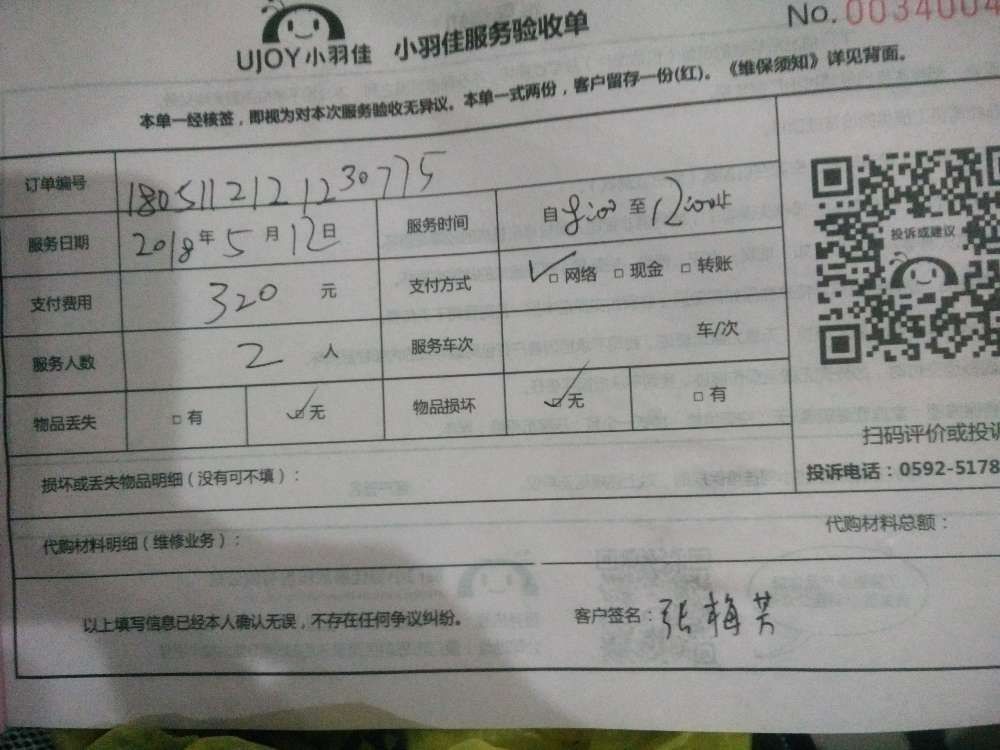 UJOY小羽佳 小羽佳服务验收单 No. 0034004
本单一经核签，即视为对本次服务验收无异议。本单一式两份，客户留存一份(红)。《维保须知》详见背面。
订单编号 1805112121230775
服务日期 2018年5月12日 服务时间 自8:00至12:00止
支付费用 320元 支付方式 ✓□网络 □现金 □转账
服务人数 2人 服务车次 车/次
物品丢失 □有 ☑无 物品损坏 ☑无 □有
投诉或建议
扫码评价或投诉
投诉电话：0592-5178
损坏或丢失物品明细（没有可不填）：
代购材料明细（维修业务）： 代购材料总额：
以上填写信息已经本人确认无误，不存在任何争议纠纷。 客户签名：张梅芳